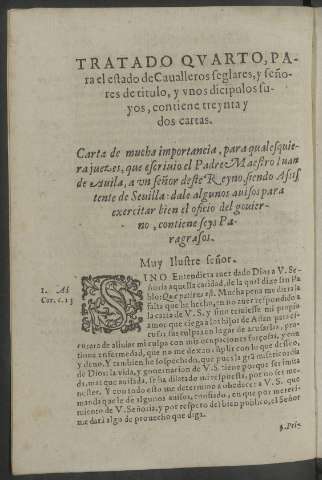 TRATADO QVARTO, PA-
ra el estado de Caualleros seglares, y seño-
res de titulo, y vnos dicipulos su-
yos, contiene treynta y
dos cartas.
Carta de mucha importancia, para qualesquie-
ra juezes, que escriuio el Padre Maestro Iuan
de Auila, a vn señor deste Reyno, siendo Asis
tente de Seuilla: dale algunos auisos para
exercitar bien el oficio del gouier-
no, contiene seys Pa-
ragrafos.
Muy Ilustre señor.
1. Ad
Cor. c. 13
SINO Entendiera auer dado Dios a V. Se-
ñoria aquella caridad, de la qual dize san Pa-
blo: Que patiens est. Mucha pena me diera la
falta que he hecho, en no auer respondido a
la carta de V. S. y sino temiesse mi propio
amor que ciega a los hijos de Adan para es-
cusar sus culpas en lugar de acusarlas,
de aliuiar mi culpa con mis ocupaciones forçosas, y con
tinua enfermedad, que no me dexan cumplir con lo que desseo,
y deuo. Y tambien he sospechado, que pues la grã misericordia
de Dios: la vida, y gouernacion de V. S. tiene porque ser imita
da, mas que auisada, se ha dilatado mi respuesta, por no ser me-
nester. Y con todo esto me determino a obedecer a V. S. que
manda que le de algunos auisos, confiado, en que por mereci-
miento de V. Señoria, y por respeto del bien publico, el Señor
me dará algo de prouecho que diga.
§. Pri-